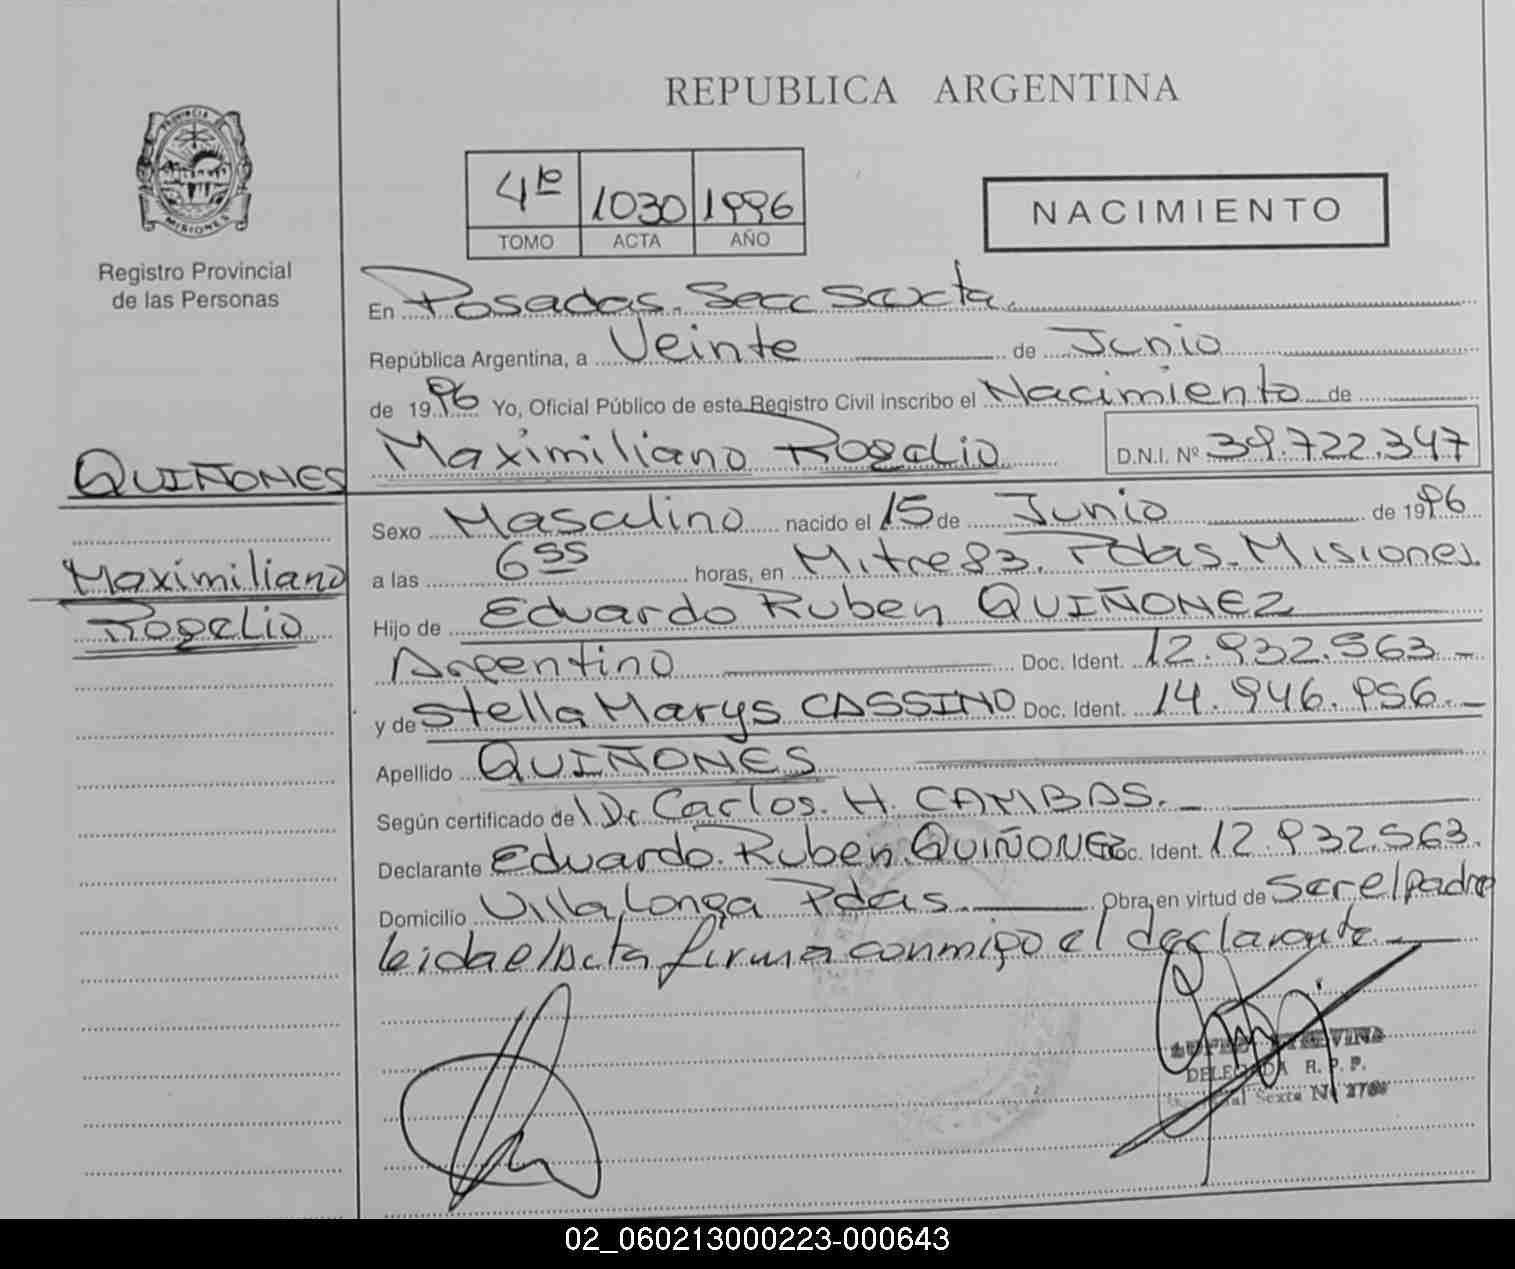 REPUBLICA ARGENTINA
PROVINCIA DE
MISIONES
Registro Provincial
de las Personas
4to 1030 1996
TOMO ACTA AÑO
NACIMIENTO
En Posadas. Secc Sexta.
República Argentina, a Veinte de Junio
de 1996 Yo, Oficial Público de este Registro Civil inscribo el Nacimiento de
Maximiliano Rogelio D.N.I. Nº 39.722.347
QUIÑONES
Maximiliano
Rogelio
Sexo Masculino nacido el 15 de Junio de 1996
a las 6 55 horas, en Mitre 83. Pdas. Misiones.
Hijo de Eduardo Ruben QUIÑONEZ
Argentino Doc. Ident. 12.932.563.-
y de Stella Marys CASSINO Doc. Ident. 14.946.956.-
Apellido QUIÑONES
Según certificado del Dr Carlos. H. CAMBAS.-
Declarante Eduardo. Ruben. QUIÑONEZ Doc. Ident. 12.932.563.
Domicilio Villa Longa Pdas. Obra en virtud de ser el padre
leida el Acta firma conmigo el declarante.-
DELEGADA R. P. P.
Sexta Nº
02_060213000223-000643